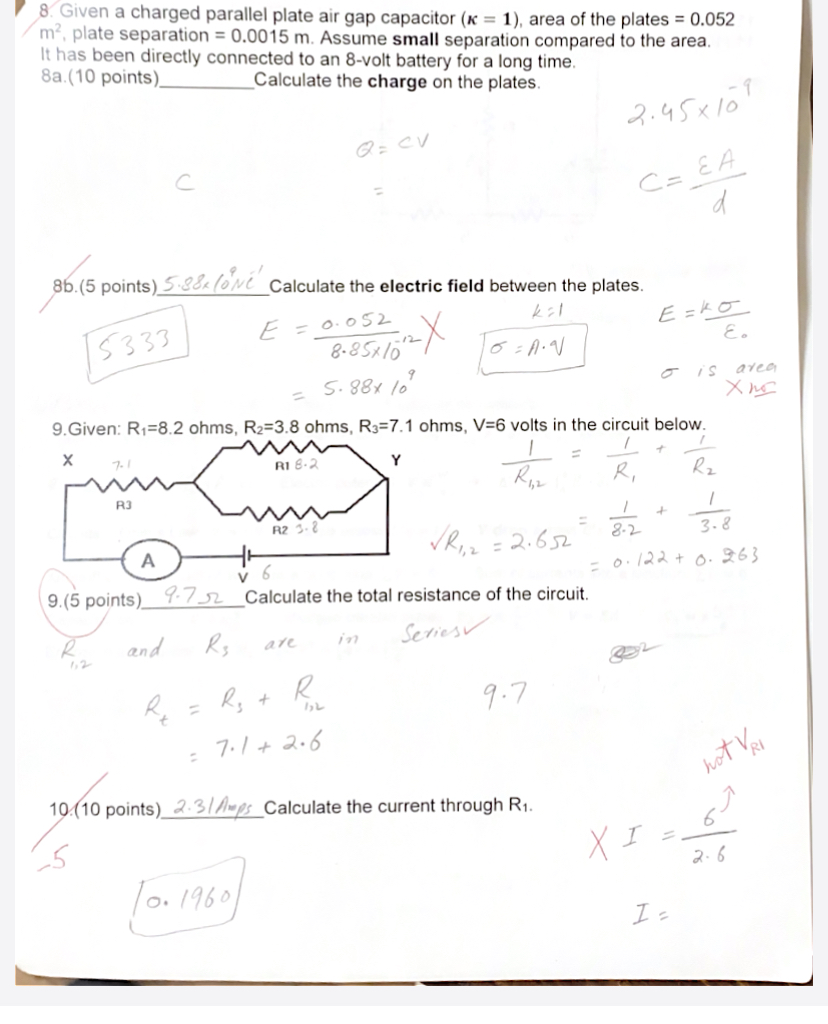 8. Given a charged parallel plate air gap capacitor (κ = 1), area of the plates = 0.052
m², plate separation = 0.0015 m. Assume small separation compared to the area.
It has been directly connected to an 8-volt battery for a long time.
8a.(10 points)__________Calculate the charge on the plates.
2.45x10⁻⁹
Q = CV
C
=
C = εA/d
8b.(5 points) 5.88x10⁹NC⁻¹ Calculate the electric field between the plates.
k=1
E = kσ/ε₀
5333
E = 0.052/8.85x10⁻¹² X
σ = A·V
= 5.88x10⁹
σ is area
X no
9.Given: R₁=8.2 ohms, R₂=3.8 ohms, R₃=7.1 ohms, V=6 volts in the circuit below.
X
7.1
R1 8.2
Y
R3
R2 3.8
A
V 6
1/R₁,₂ = 1/R₁ + 1/R₂
= 1/8.2 + 1/3.8
✓R₁,₂ = 2.6Ω
= 0.122 + 0.263
9.(5 points) 9.7Ω Calculate the total resistance of the circuit.
R₁,₂ and R₃ are in series✓
Rt = R₃ + R₁,₂
9.7
= 7.1 + 2.6
not VR1
10.(10 points) 2.31 Amps Calculate the current through R₁.
-5
X I = 6/2.6
0.1960
I =